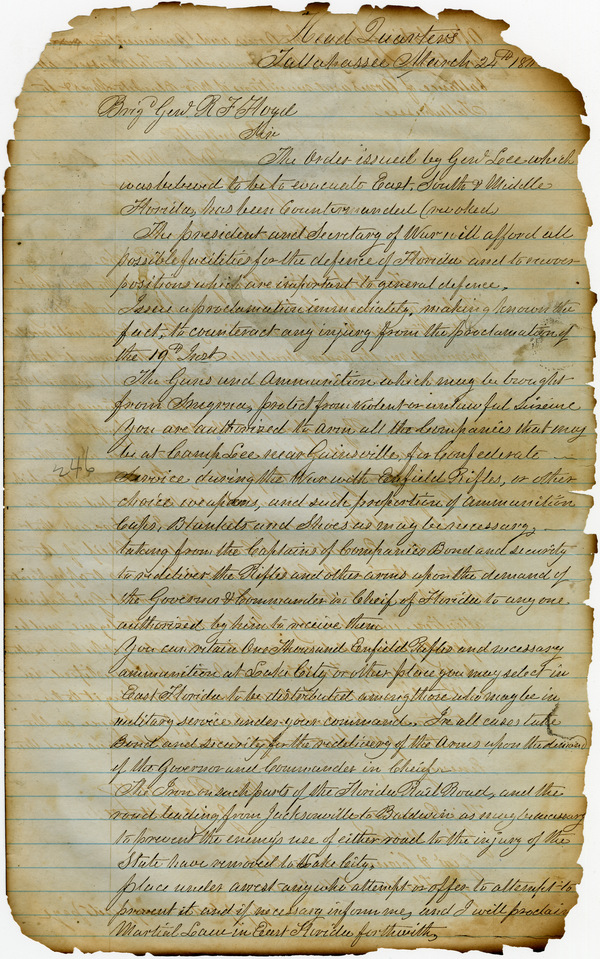 Head Quarters
Tallahassee March 24th 18
Brigd Genl R F Floyd
Sir
The Order issued by Genl Lee which
was believed to be to evacuate East, South & Middle
Florida, has been Countermanded (revoked)
The president and Secretary of War will afford all
possible facilities for the defence of Florida and to recover
positions which are important to general defence.
Issue a proclamation immediately, making known the
fact, to counteract any injury from the proclamation of
the 19th Inst
The Guns and Ammunition which may be brought
from Smyrna, protect from violent or unlawful Seizure
You are authorized to arm all the Companies that may
be at Camp Lee near Gainsville, for Confederate
246
Service during the War with Enfield Rifles, or other
choice weapons, and such proportion of ammunition
Caps, Blankets and Shoes as may be necessary,
taking from the Captains of Companies Bond and security
to redeliver the Rifles and other arms upon the demand of
the Governor & Commander in Cheif of Florida to any one
authorized by him to receive them
You can retain One Thousand Enfield Rifles and necessary
ammunition at Lake City or other place you may select in
East Florida to be distributed among those who may be in
military service under your command. In all cases take
Bond and security for the redelivery of the Arms upon the demand
of the Governor and Commander in Cheif
The Iron on such parts of the Florida Rail Road, and the
road leading from Jacksonville to Baldwin as may be necessary
to prevent the enemys use of either road to the injury of the
State have removed to Lake City,
place under arrest any who attempt or offer to attempt to
prevent it and if necessary inform me, and I will proclaim
Martial Law in East Florida forthwith,